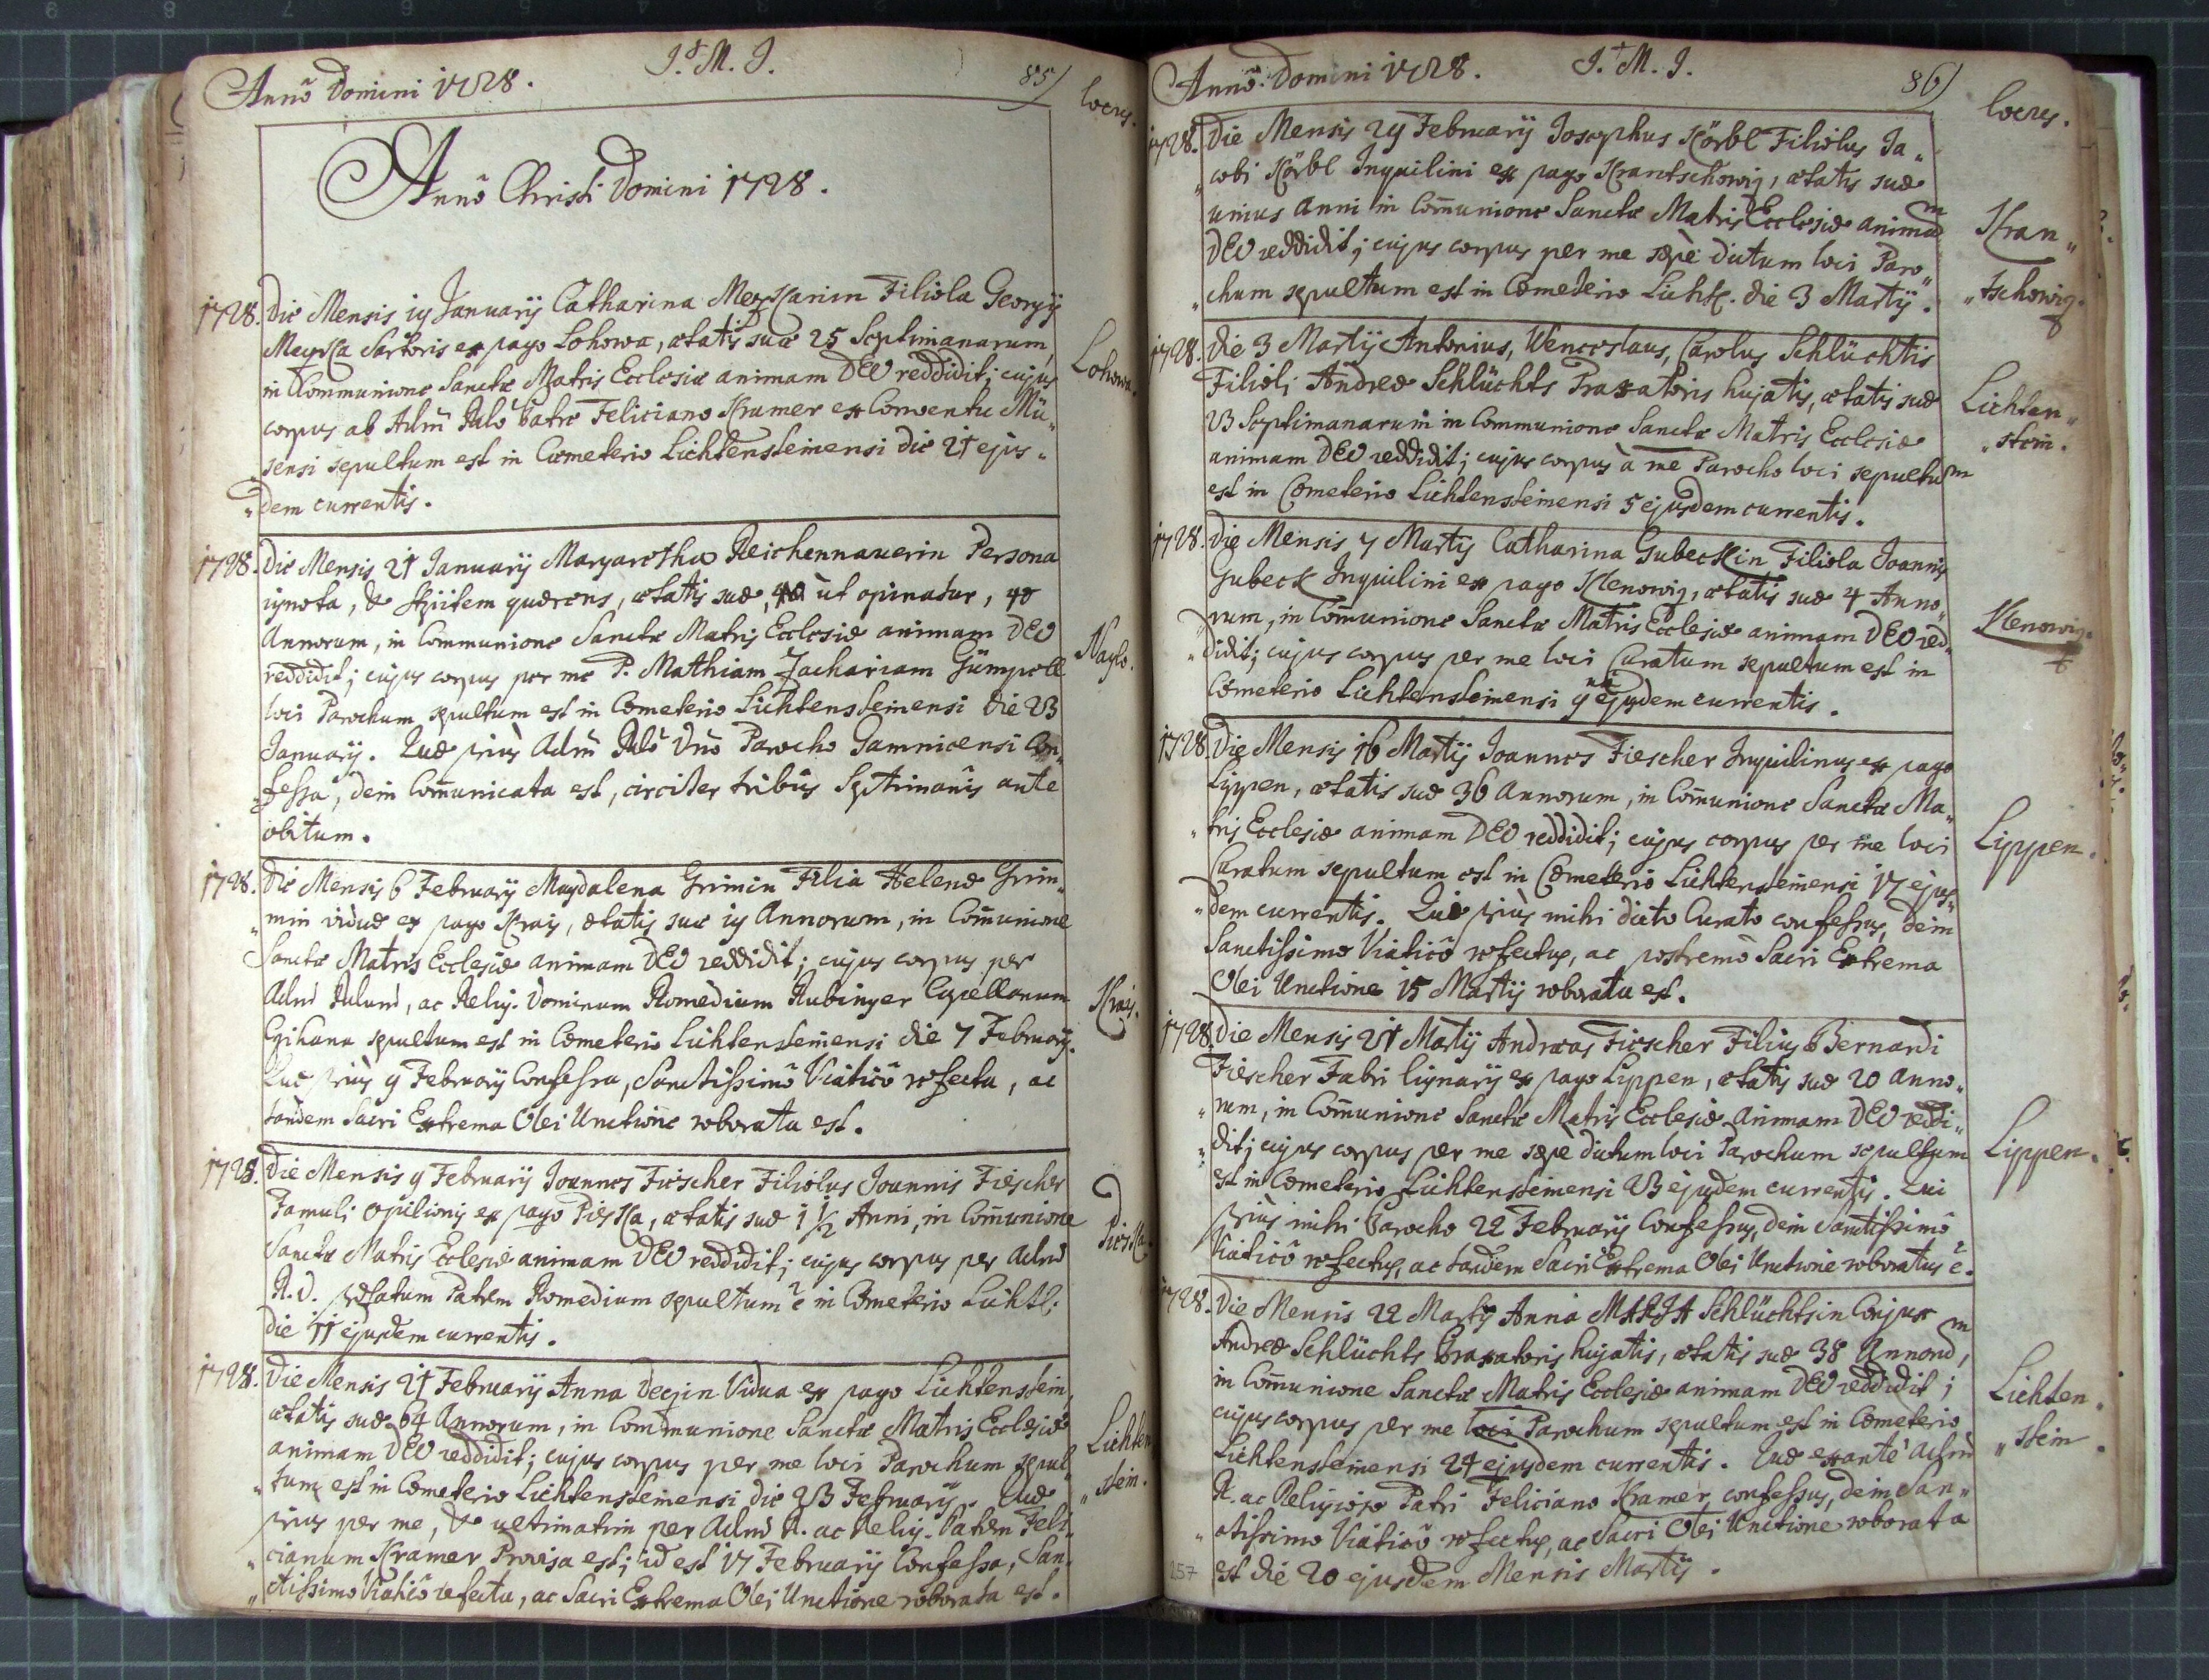 Annô Domini 1728.
J. M. J.
85
locus.
Annô Christi Domini 1728.
1728. Die Mensis 19 Januarij Catharina Meyskanin Filiola Georgij
Meyska Sartoris ex pago Lohowa, ætatis suæ 25 Septimanarum,
in Communione Sanctæ Matris Ecclesiæ animam DEO reddidit; cujus
corpus ab Adm̃ Rdo Patre Feliciano Kramer ex Conventu Mi„
sensi sepultum est in Cœmeterio Lichtensteinensi die 21 ejus„
„dem currentis.
Lohowa.
1728. Die Mensis 21 Januarij Margaretha Reichennauerin Persona
ignota, & stipitem quærens, ætatis suæ, ut opinatur, 40
Annorum, in Communione Sanctæ Matris Ecclesiæ animam DEO
reddidit; cujus corpus per me P. Mathiam Zachariam Gümpoll
loci Parochum sepultum est in Cœmeterio Lichtensteinensi die 23
Januarij. Quæ priùs Adm̃ Rdo Dño Parocho Gamnicensi Con„
„fessa, dein Com̃unicata est, circiter tribus Septimanis ante
obitum.
Naglo.
1728. Die Mensis 6 Februarij Magdalena Grimin Filia Helenæ Grim„
„min viduæ ex pago Krais, ætatis suæ 19 Annorum, in Com̃unione
Sanctæ Matris Ecclesiæ animam DEO reddidit; cujus corpus per
Adm̃ Rdum, ac Relig. Dominum Romedium Rubinger Capellanum
sepultum est in Cœmeterio Lichtensteinensi die 7 Februarij.
Quæ priùs 4 Februarij Confessa, Sanctissimô Viaticô refecta, ac
tandem Sacri Extrema Olei Unctione roborata est.
Krais.
1728. Die Mensis 9 Februarij Joannes Fiescher Filiolus Joannis Fiescher
Famuli opilionis ex pago Pieska, ætatis suæ 1 1/2 Anni, in Com̃unione
Sanctæ Matris Ecclesiæ animam DEO reddidit; cujus corpus per Adm̃
R. D. præfatum Patrem Romedium sepultum ẽ in Cœmeterio Lichts:
die 11 ejusdem currentis.
Pieska.
1728. Die Mensis 21 Februarij Anna Degin Vidua ex pago Lichtenstein,
ætatis suæ 64 Annorum, in Communione Sanctæ Matris Ecclesiæ
animam DEO reddidit; cujus corpus per me loci Parochum sepul„
„tum est in Cœmeterio Lichtensteinensi die 23 Februarij. Quæ
priùs per me, & ultimatim per Adm̃ R. ac Relig. Patrem Feli„
„cianum Kramer Provisa est; id est 17 Februarij Confessa, San„
„ctissimô Viaticô refecta, ac Sacri Extrema Olei Unctione roborata est.
Lichten
„stein.
Annô Domini 1728.
J. M. J.
86
locus.
1728. Die Mensis 29 Februarij Josephus Körbl Filiolus Ja„
„cobi Körbl Inquilini ex pago Krantschowig, ætatis suæ
unius Anni in Com̃unione Sanctæ Matris Ecclesiæ animam
DEO reddidit; cujus corpus per me sæpè dictum loci Paro„
„chum sepultum est in Cœmeterio Lichts. die 3 Martij.
Kran„
„tschowig.
1728. Die 3 Martij Antonius, Wenceslaus, Carolus Schlüchtis
Filiol; Andreæ Schlüchts Braxatoris hujatis, ætatis suæ
23 Septimanarum in Communione Sanctæ Matris Ecclesiæ
animam DEO reddidit; cujus corpus à me Parocho loci sepultum
est in Cœmeterio Lichtensteinensi 5 ejusdem currentis.
Lichten„
„stein.
1728. Die Mensis 7 Martij Catharina Gubeckin Filiola Joannis
Gubeck Inquilini ex pago Klenowig, ætatis suæ 4 Anno„
„rum, in Com̃unione Sanctæ Matris Ecclesiæ animam DEO red„
„didit; cujus corpus per me loci Curatum sepultum est in
Cœmeterio Lichtensteinensi 9 ejusdem currentis.
Klenowig.
1728. Die Mensis 16 Martij Joannes Fiescher Inquilinus ex pago
Lippen, ætatis suæ 36 annorum, in Com̃unione Sanctæ Ma„
„tris Ecclesiæ animam DEO reddidit; cujus corpus per me loci
Curatum sepultum est in Cœmeterio Lichtensteinensi 17 ejus„
„dem currentis. Qui priùs mihi dicto Curato confessus, dein
Sanctissimô Viaticô refectus, ac postremò Sacri Extrema
Olei Unctione 15 Martij roborata est.
Lippen.
1728. Die Mensis 21 Martij Andreas Fiescher Filius Bernardi
Fiescher Fabri lignarij ex pago Lippen, ætatis suæ 20 anno„
„rum, in Com̃unione Sanctæ Matris Ecclesiæ animam DEO reddi„
„dit; cujus corpus per me sæpè dictum loci Parochum sepultum
est in Cœmeterio Lichtensteinensi 23 ejusdem currentis. Qui
priùs mihi Parocho 22 Februarij Confessus, dein Sanctissimô
Viaticô refectus, ac tandem Sacri Extrema Olei Unctione roboratus ẽ.
Lippen.
1728. Die Mensis 22 Martij Anna MARIA Schlüchtsin Conjux
Andreæ Schlüchts Braxatoris hujatis, ætatis suæ 38 Annorum,
in Com̃unione Sanctæ Matris Ecclesiæ animam DEO reddidit;
cujus corpus per me loci Parochum sepultum est in Cœmeterio
Lichtensteinensi 24 ejusdem currentis. Quæ exante Adm̃
R. ac Religioso Patri Feliciano Kramer confessus, dein San„
„ctissimo Viaticô refectus, ac Sacri Olei Unctione roborata
est die 20 ejusdem Mensis Martij.
Lichten.
„stein.
257